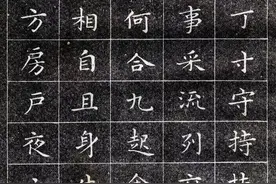 丁寸守持
事采流列
何合九起
相自且身
方房戶夜